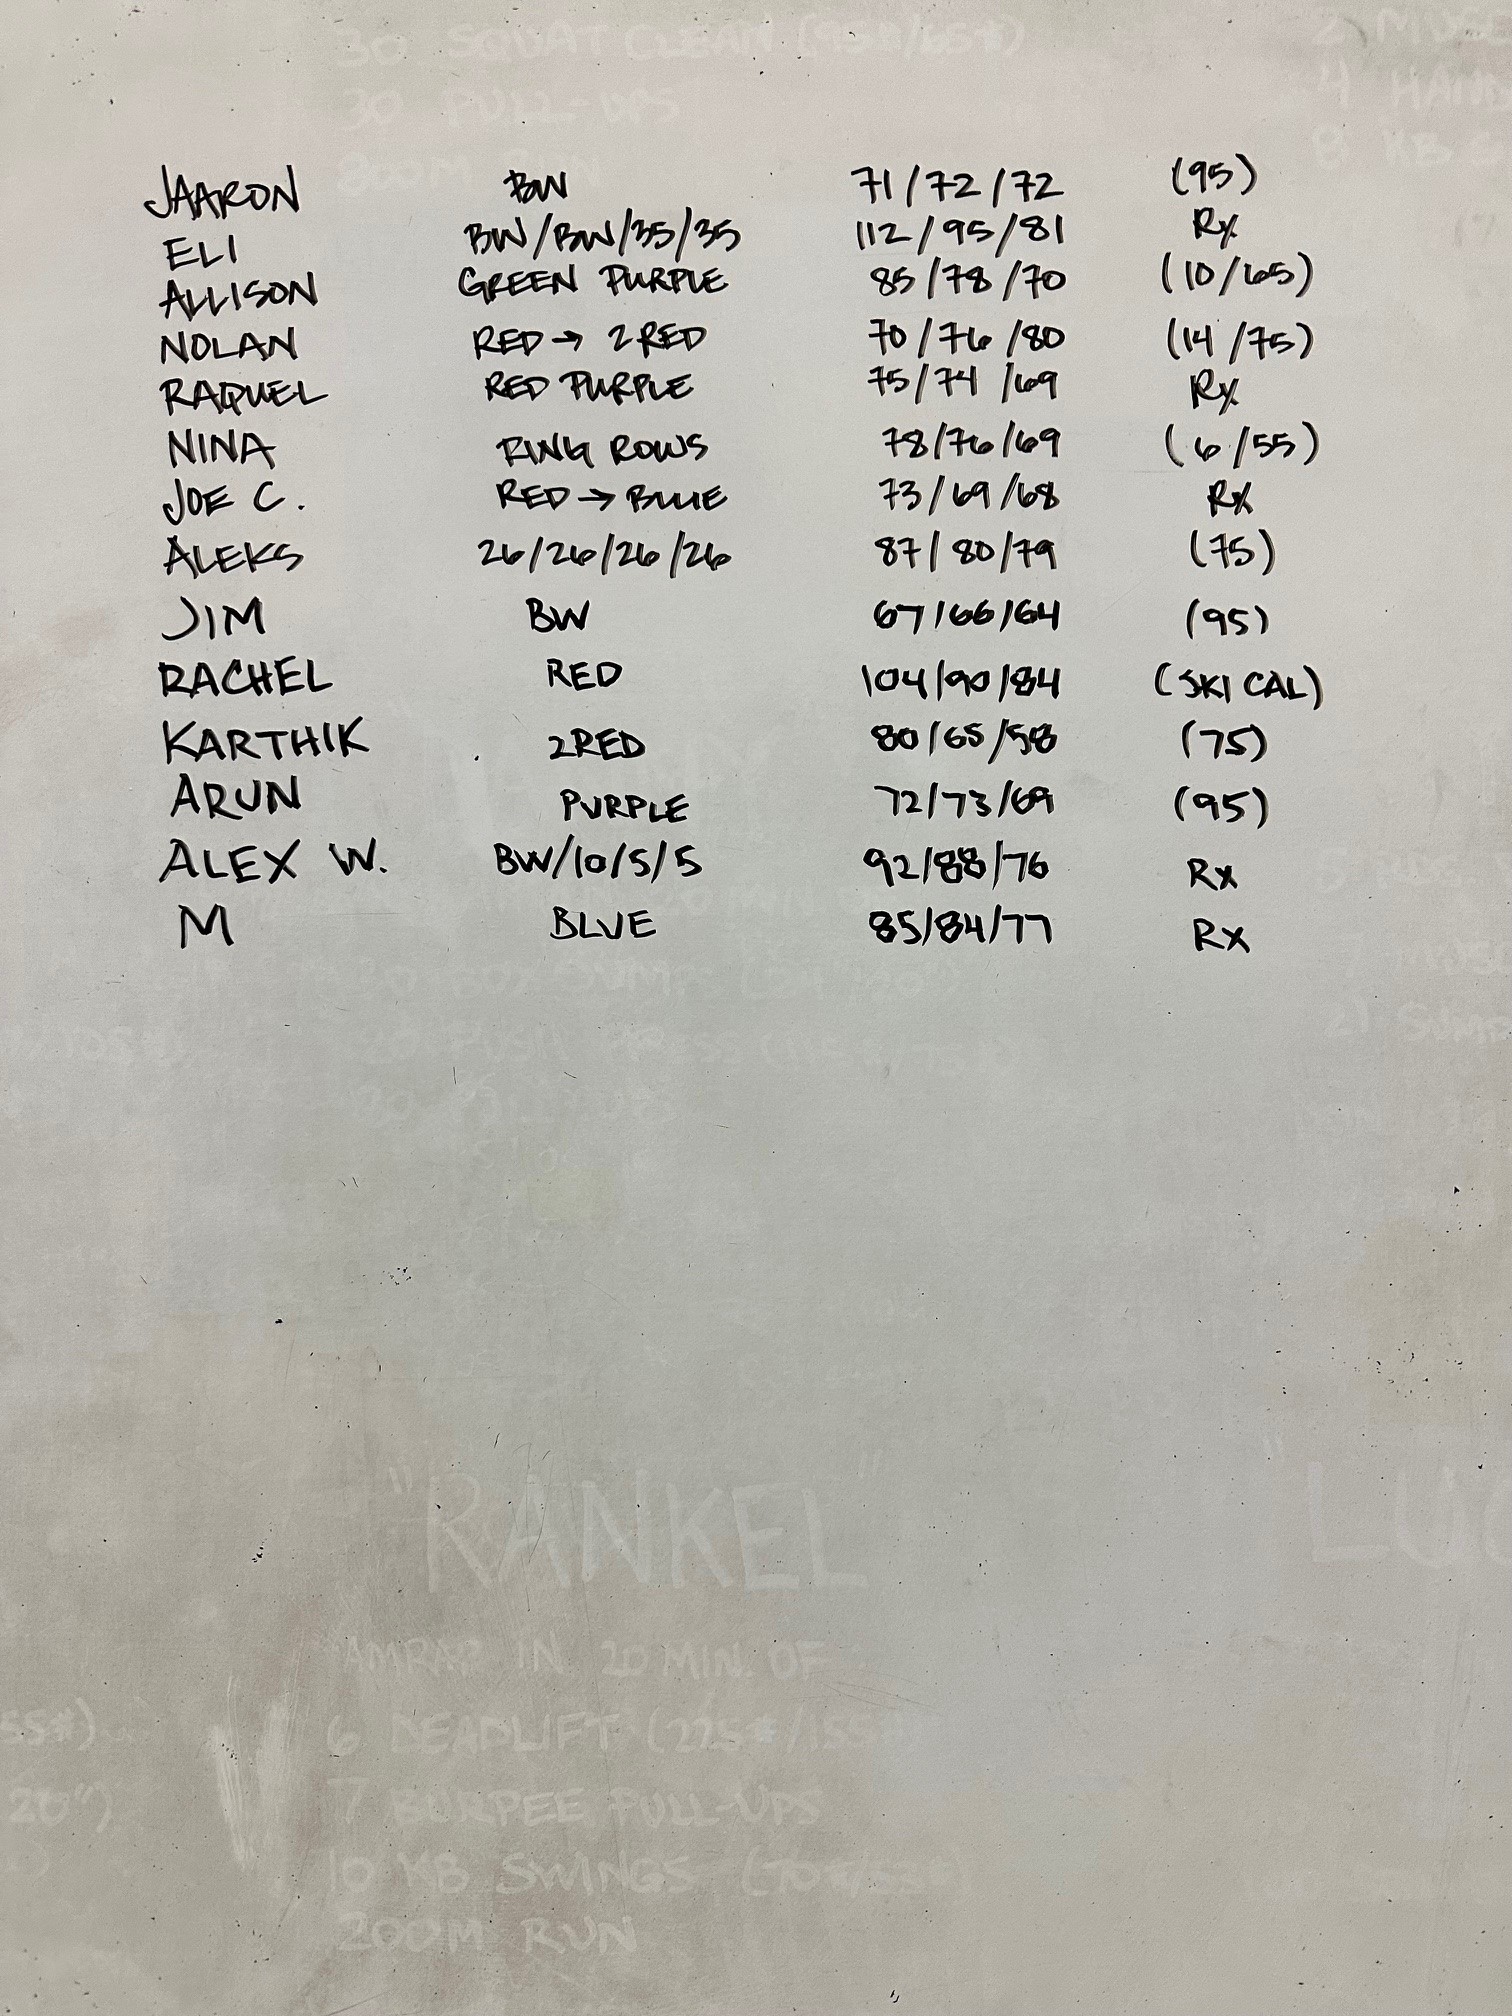 30 SQUAT CLEAN (95#/65#)
30 PULL-UPS
800M RUN
JAARON BW 71/72/72 (95)
ELI BW/BW/35/35 112/95/81 Rx
ALLISON GREEN PURPLE 85/78/70 (10/65)
NOLAN RED → 2 RED 70/76/80 (14/75)
RAQUEL RED PURPLE 75/74/69 Rx
NINA RING ROWS 78/76/69 (6/55)
JOE C. RED → BLUE 73/69/68 Rx
ALEKS 26/26/26/26 87/80/79 (75)
JIM BW 67/66/64 (95)
RACHEL RED 104/90/84 (SKI CAL)
KARTHIK 2RED 80/65/58 (75)
ARUN PURPLE 72/73/69 (95)
ALEX W. BW/10/5/5 92/88/76 Rx
M BLUE 85/84/77 Rx
"RANKEL"
AMRAP IN 20 MIN. OF
6 DEADLIFT (225#/155
7 BURPEE PULL-UPS
10 KB SWINGS
200M RUN